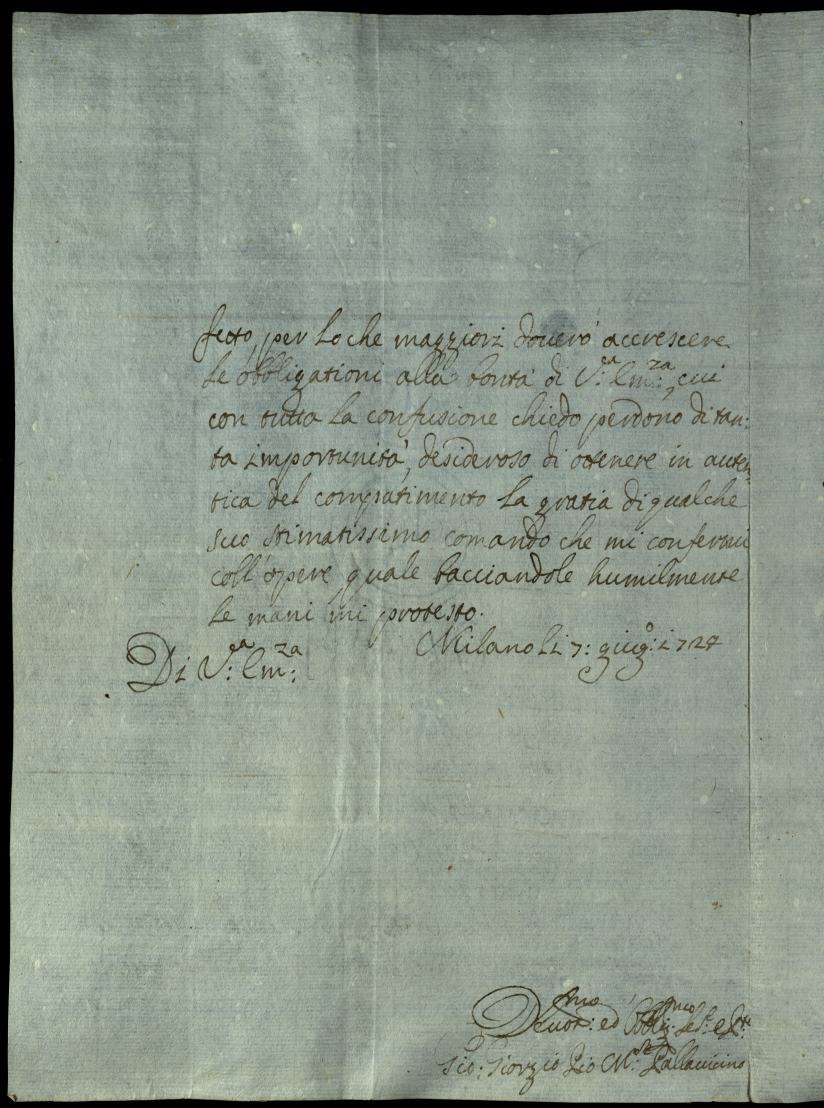 fetto, per lo che maggiori dovero' accrescere
le obbligationi alla bontà di V:ra Em:za, cui
con tutta la confusione chiedo perdono di tan:
ta importunità, desideroso di ottenere in auten:
tica del compatimento la gratia di qualche
suo stimatissimo comando che mi confermi
coll'opere, quale bacciandole humilmente
le mani mi protesto.
Milano li 7: giug:o 1724
Di V:ra Em:za
Devot:mo ed Obblig:mo
Gio: Giorgio M:se Pallavicino